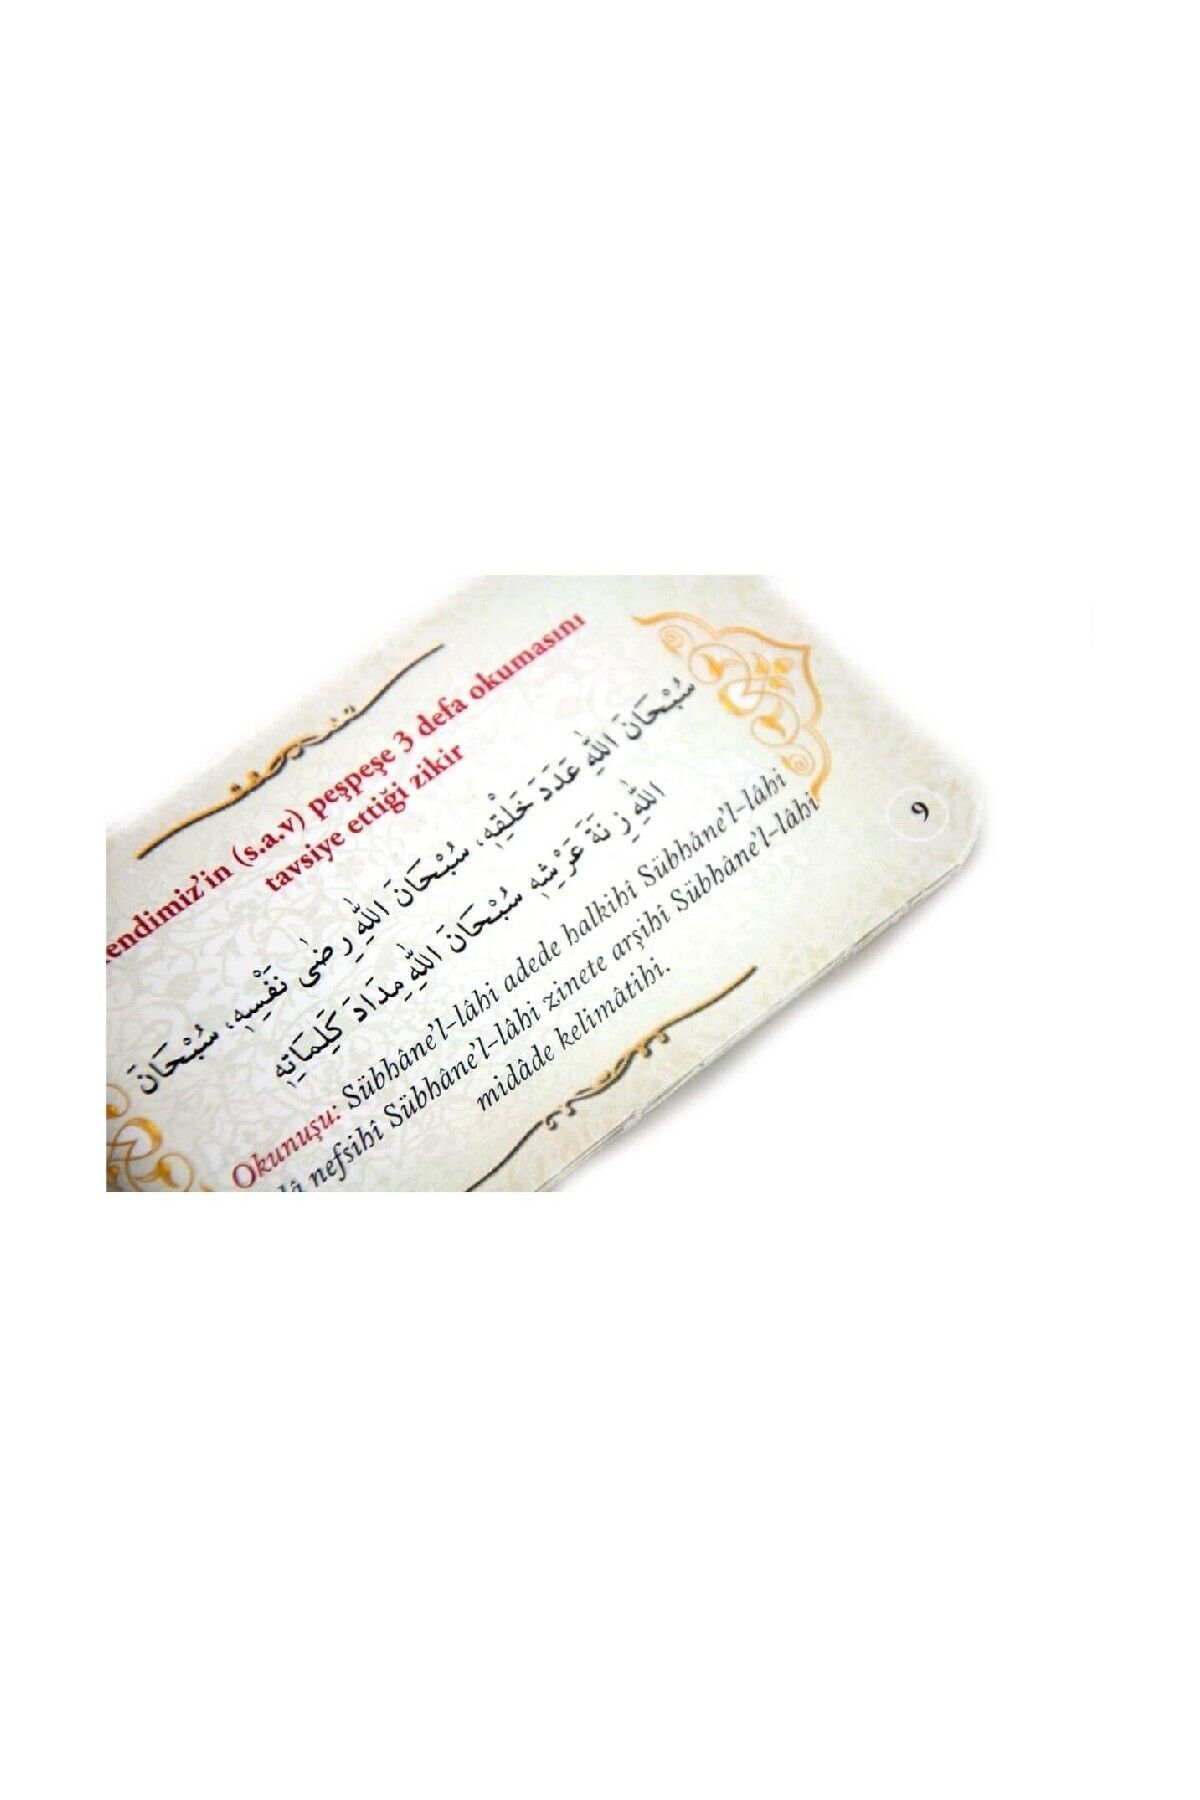 endimiz'in (s.a.v) peşpeşe 3 defa okumasını
tavsiye ettiği zikir
سُبْحَانَ اللّٰهِ عَدَدَ خَلْقِهِ، سُبْحَانَ اللّٰهِ رِضٰى نَفْسِهِ، سُبْحَانَ
اللّٰهِ زِنَةَ عَرْشِهِ سُبْحَانَ اللّٰهِ مِدَادَ كَلِمَاتِهِ
Okunuşu: Sübhâne'l-lâhi adede halkihî Sübhâne'l-lâhi
nefsihî Sübhâne'l-lâhi zinete arşihî Sübhâne'l-lâhi
midâde kelimâtihi.
9